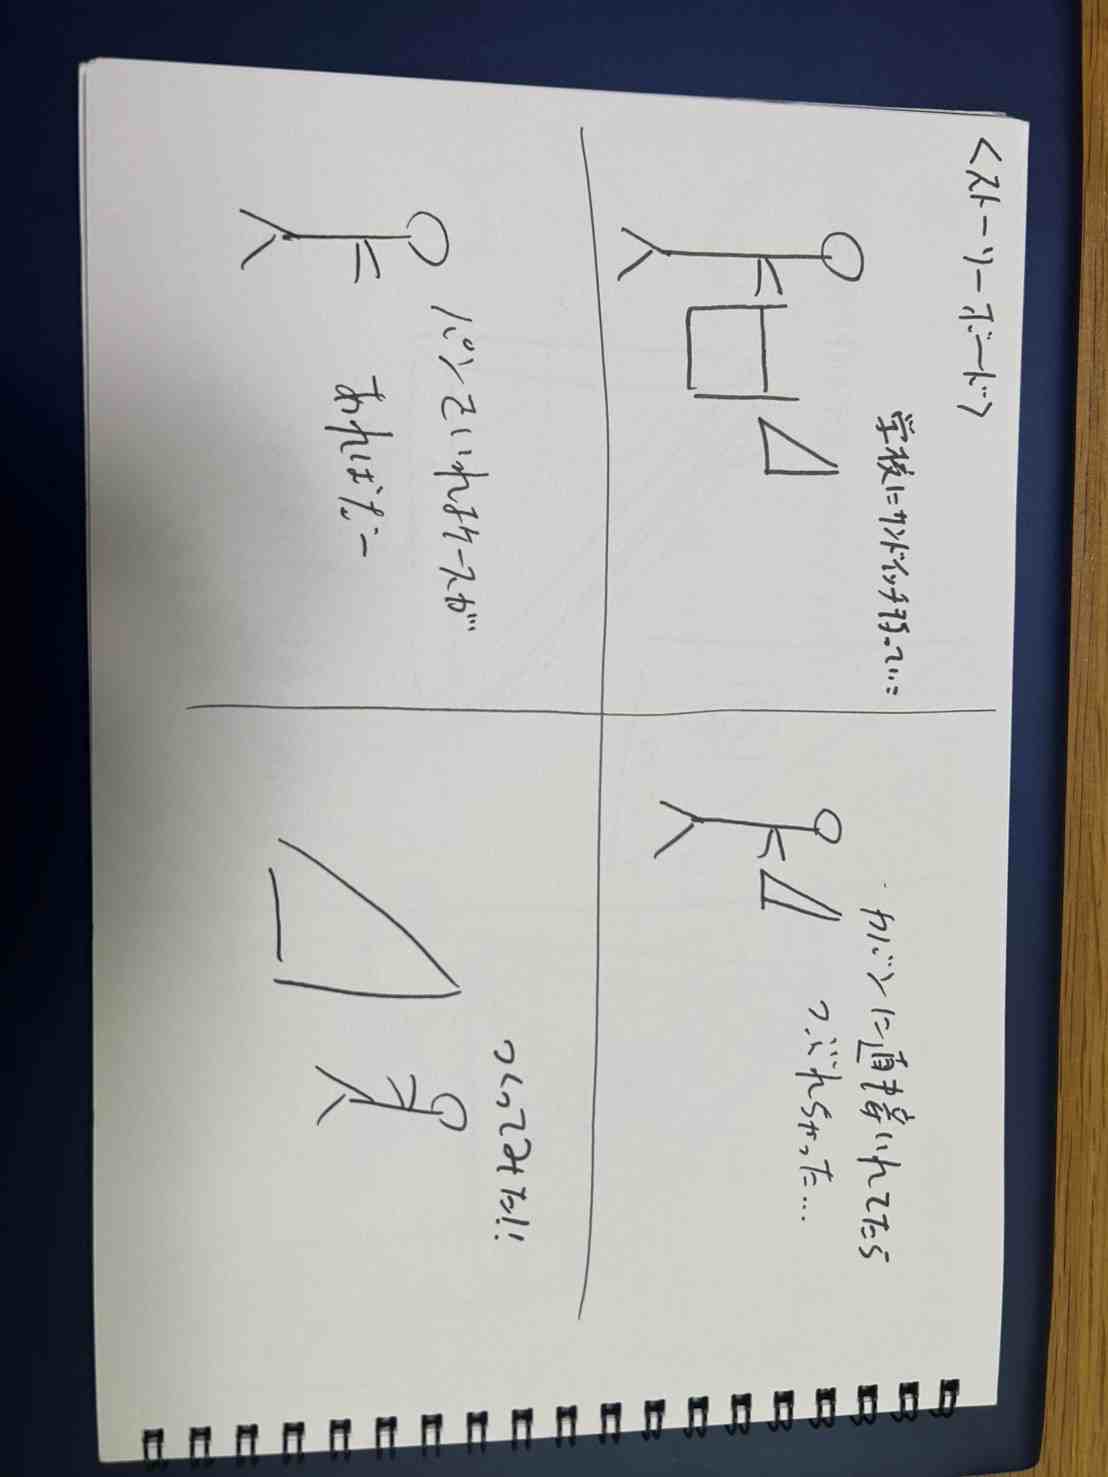 <ストーリーボード>
学校にサンドイッチ持っていこ
カバンに直接いれてたら
つぶれちゃった...
パンをいれるケースが
あればなー
つくってみた!!